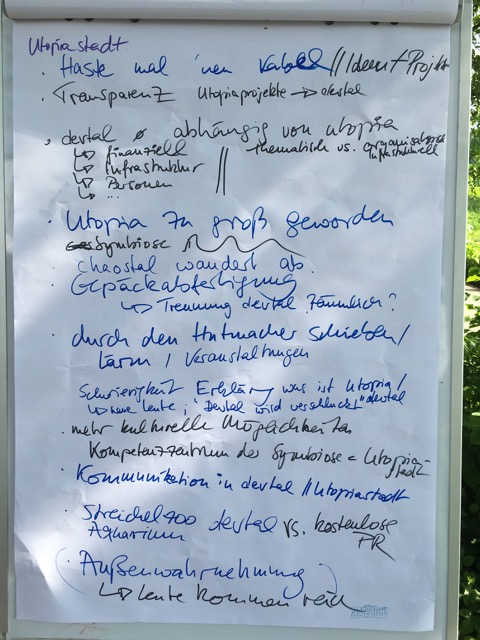 Utopiastadt
· Haste mal 'nen Kabel // Ideen + Projekte
· Transparenz Utopiaprojekte → devtal
· devtal ∅ abhängig von utopia
↳ finanziell
thematisch vs. organisatorisch
infrastrukturell
↳ Infrastruktur
↳ Personen
↳ ...
· Utopia zu groß geworden
Symbiose
· chaostal wandert ab.
· Gepäckabfertigung
↳ Trennung devtal räumlich?
· durch den Hutmacher schieben/
Lärm / Veranstaltungen
Schwierigkeit Erklärung was ist Utopia/
↳ neue Leute; "Devtal wird verschluckt" devtal
· mehr kulturelle Möglichkeiten
Kompetenzzentrum der Symbiose = Utopia-
stadt
· Kommunikation in devtal // Utopiastadt
· Streichelzoo devtal vs. kostenlose
Aquarium PR
(· Außenwahrnehmung)
↳ Leute kommen rein